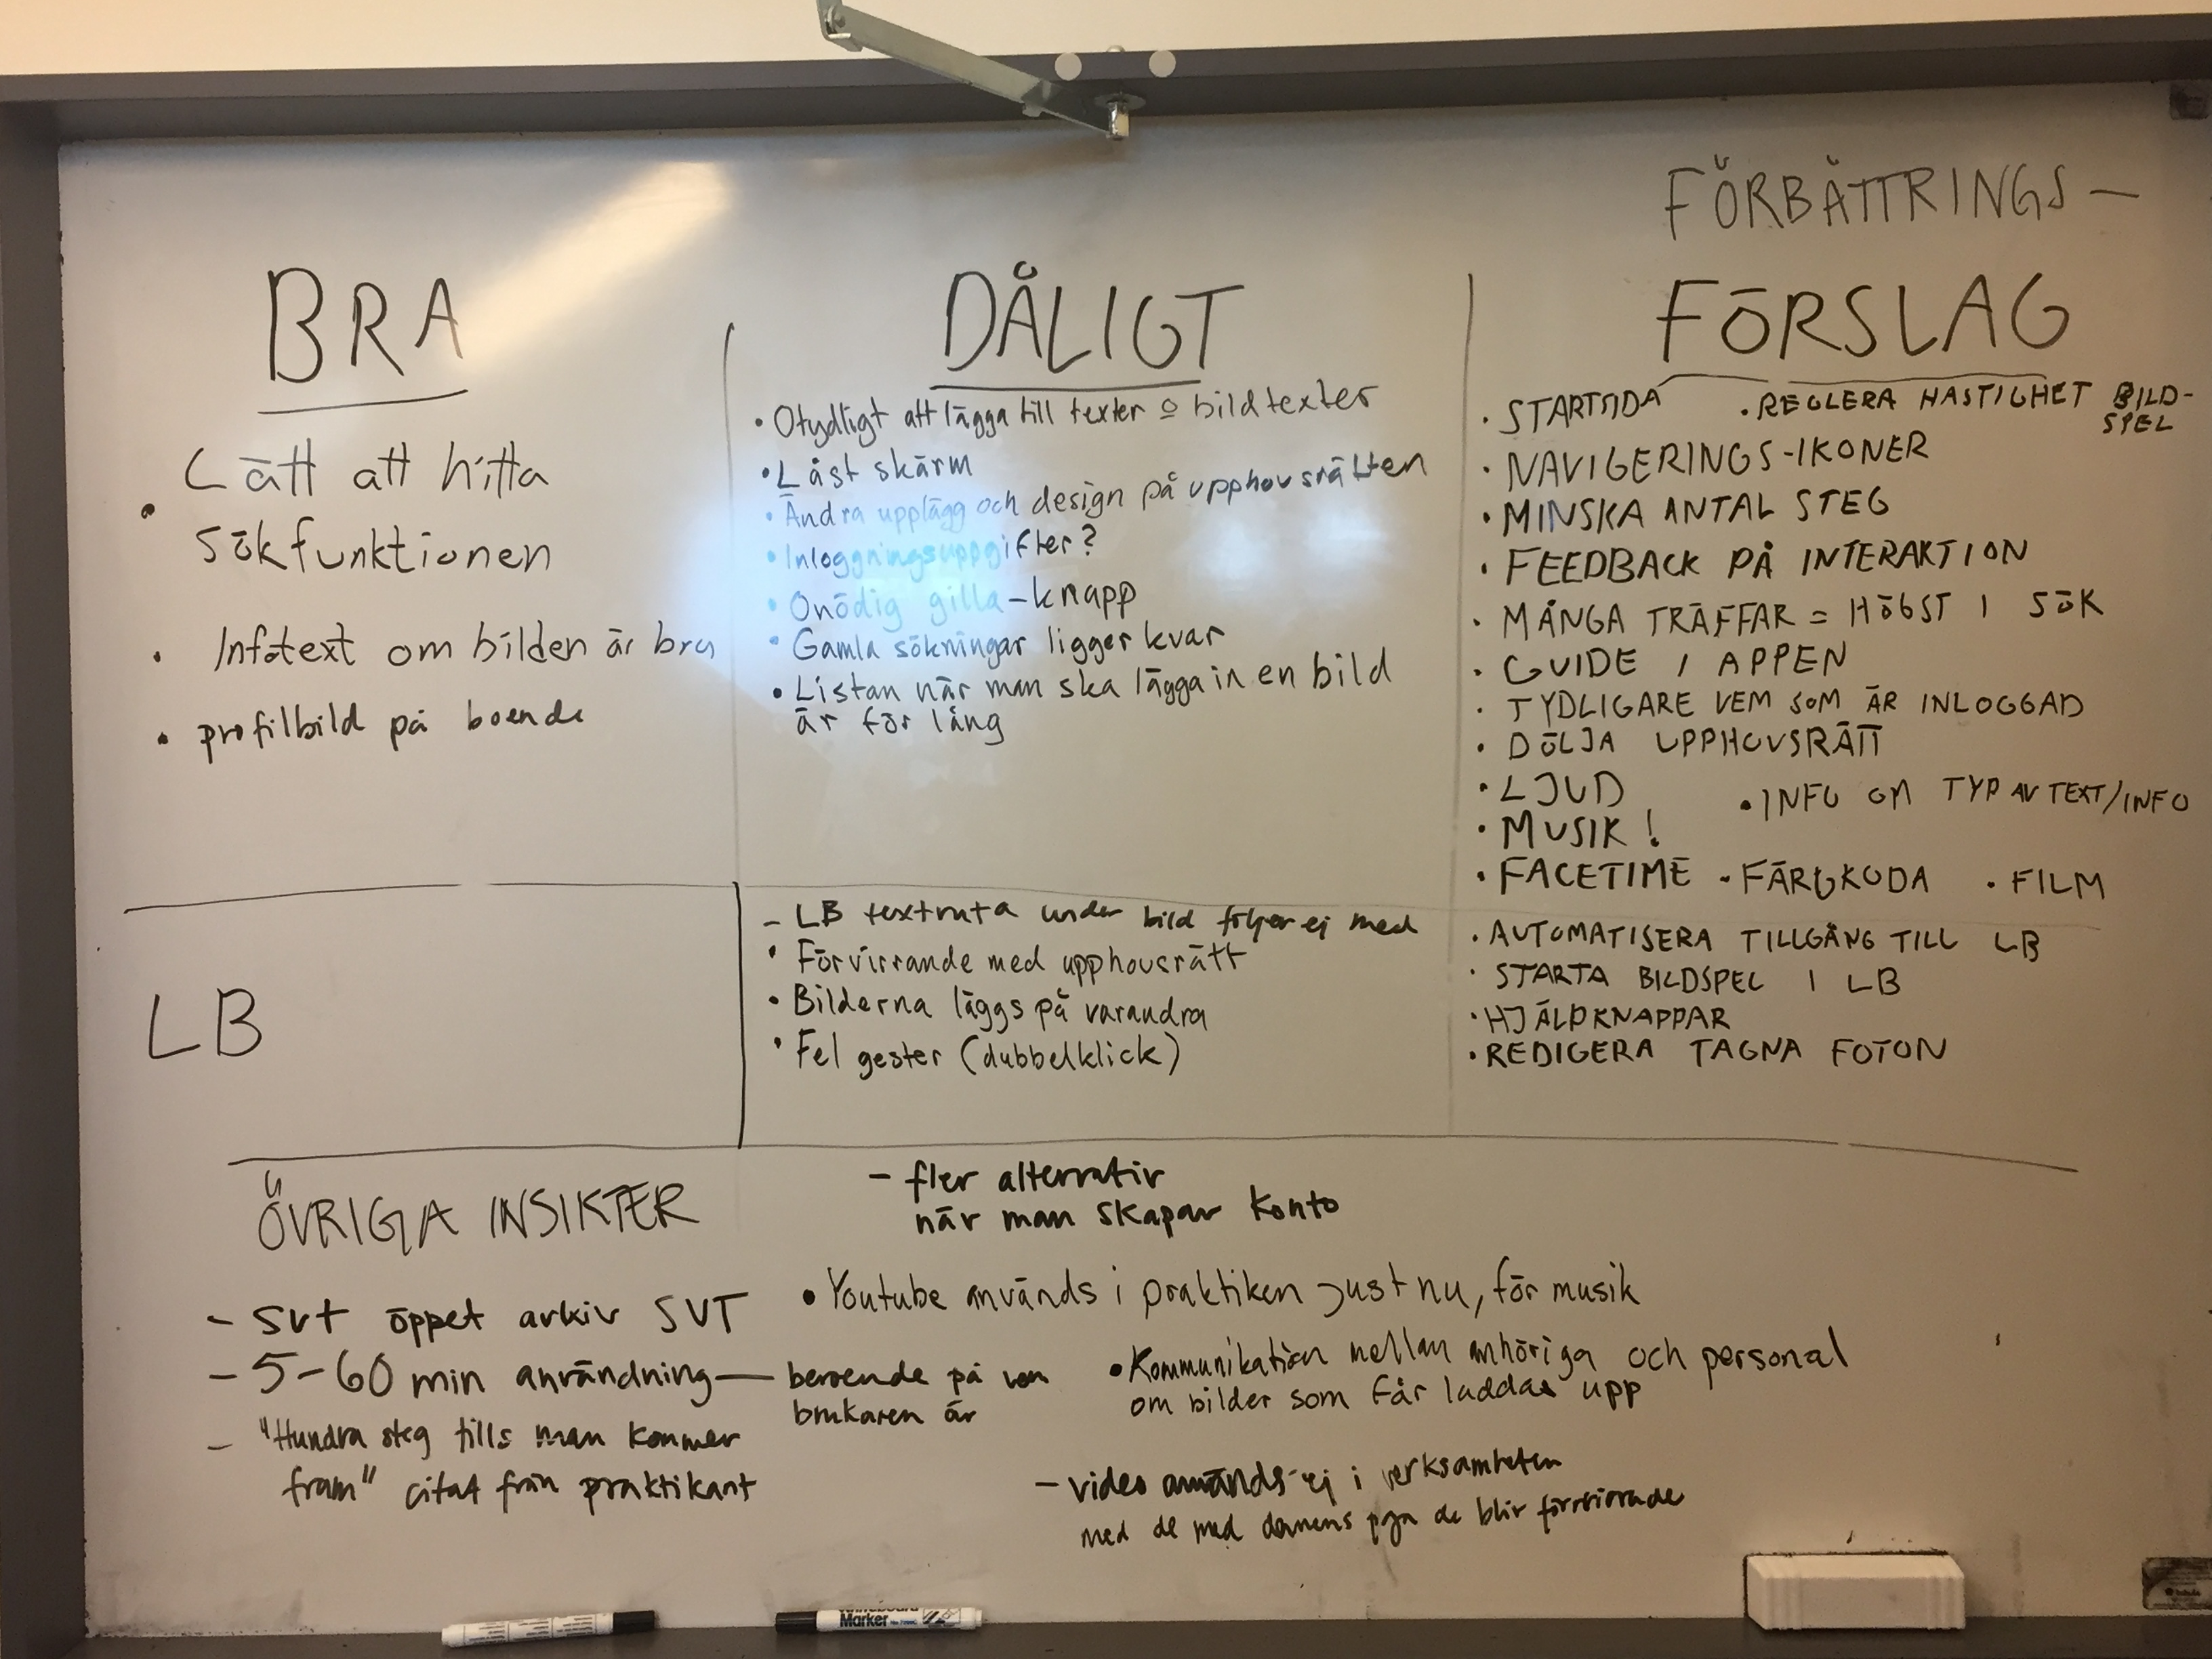 FÖRBÄTTRINGS-
FÖRSLAG
BRA
DÅLIGT
Lätt att hitta
sökfunktionen
• Infotext om bilden är bra
• profilbild på boende
• Otydligt att lägga till texter o bildtexter
• Låst skärm
• Ändra upplägg och design på upphovsrätten
• Inloggningsuppgifter?
• Onödig gilla-knapp
• Gamla sökningar ligger kvar
• Listan när man ska lägga in en bild
är för lång
• STARTSIDA • REGLERA HASTIGHET BILD-
SPEL
• NAVIGERINGS-IKONER
• MINSKA ANTAL STEG
• FEEDBACK PÅ INTERAKTION
• MÅNGA TRÄFFAR = HÖGST I SÖK
• GUIDE I APPEN
• TYDLIGARE VEM SOM ÄR INLOGGAD
• DÖLJA UPPHOVSRÄTT
• LJUD • INFO OM TYP AV TEXT/INFO
• MUSIK!
• FACETIME • FÄRGKODA • FILM
LB
- LB textruta under bild följer ej med
• Förvirrande med upphovsrätt
• Bilderna läggs på varandra
• Fel gester (dubbelklick)
• AUTOMATISERA TILLGÅNG TILL LB
• STARTA BILDSPEL I LB
• HJÄLPKNAPPAR
• REDIGERA TAGNA FOTON
ÖVRIGA INSIKTER
- fler alternativ
när man skapar konto
- svt öppet arkiv SVT
- 5-60 min användning — beroende på vem
brukaren är
- "Hundra steg tills man kommer
fram" citat från praktikant
• Youtube används i praktiken just nu, för musik
• Kommunikation mellan anhöriga och personal
om bilder som får laddas upp
- video används ej i verksamheten
med de med demens pga de blir förvirrade
Marker